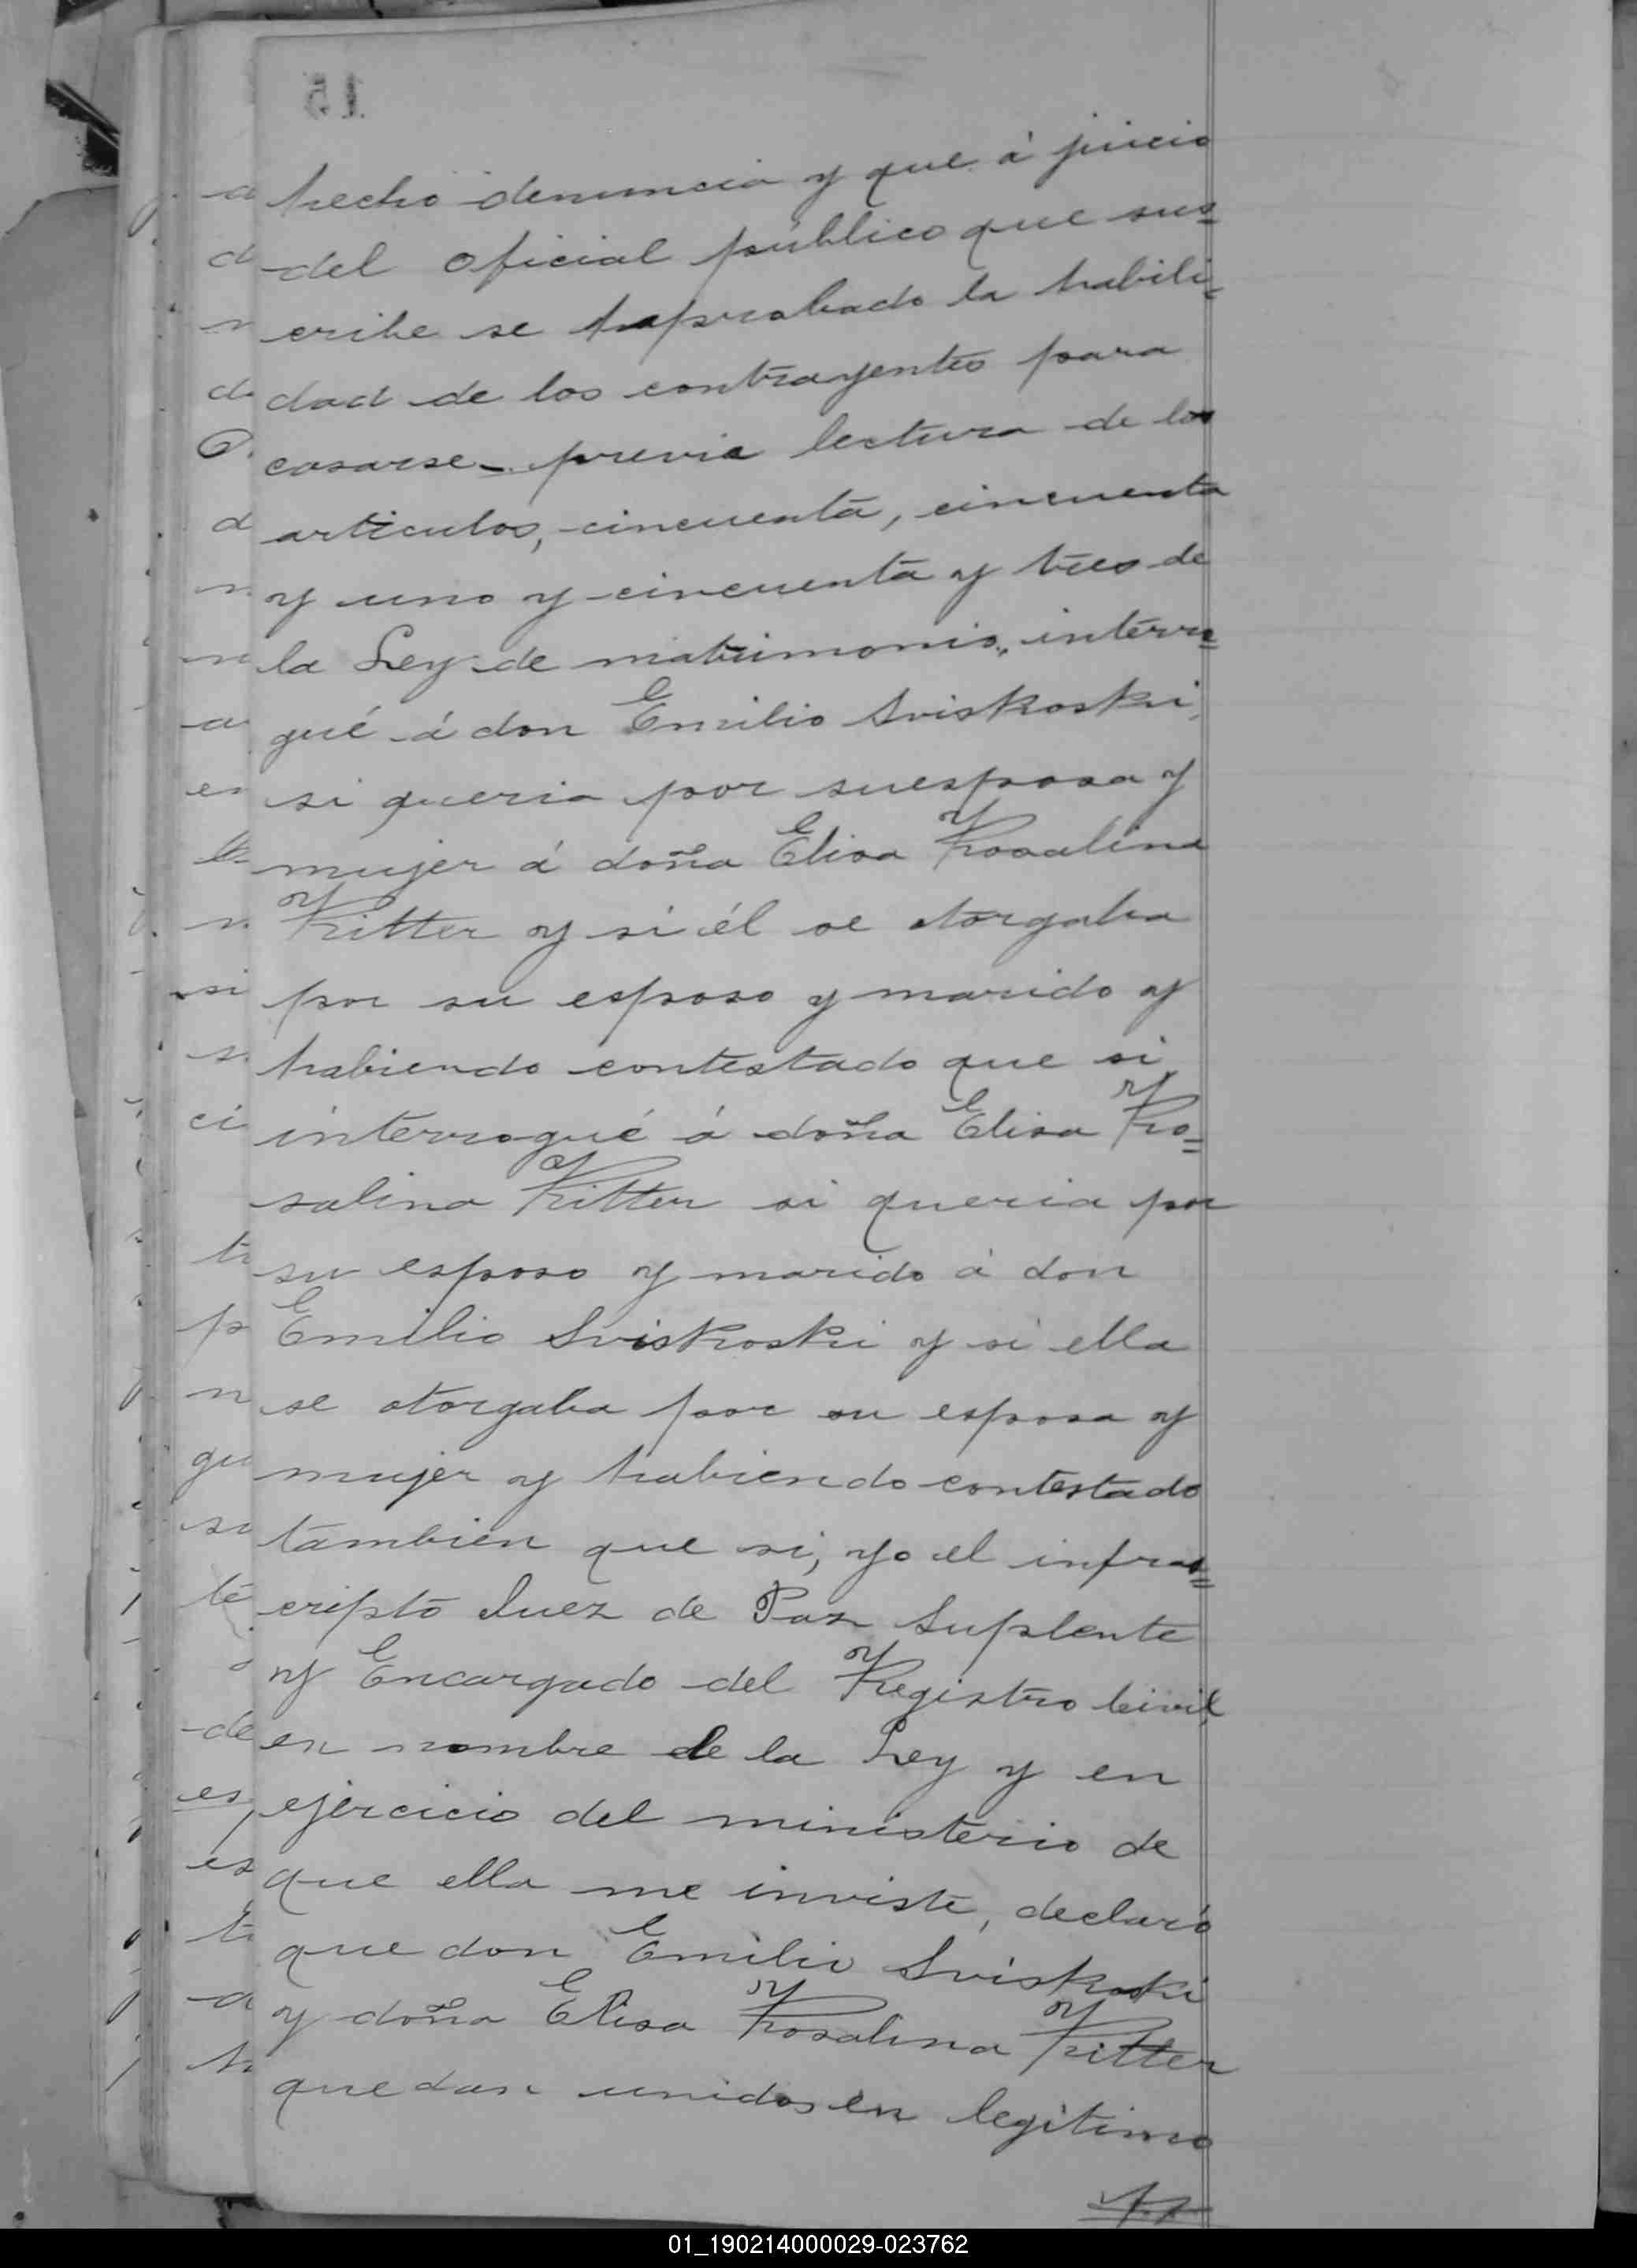 15
hecho denuncia y que á juicio
del oficial público que sus=
cribe se ha probado la habili=
dad de los contrayentes para
casarse - previa lectura de los
articulos, cincuenta, cincuenta
y uno y cincuenta y tres de
la Ley de matrimonio, interro=
gué á don Emilio Sviskoski,
si queria por su esposa y
mujer á doña Elisa Rosalina
Ritter y si él se otorgaba
por su esposo y marido y
habiendo contestado que si
interrogué á doña Elisa Ro=
salina Ritter si queria por
su esposo y marido á don
Emilio Sviskoski y si ella
se otorgaba por su esposa y
mujer y habiendo contestado
tambien que si, yo el infras=
cripto Juez de Paz Suplente
y Encargado del Registro Civil,
en nombre de la Ley y en
ejercicio del ministerio de
que ella me inviste, declaró
que don Emilio Sviskoski
y doña Elisa Rosalina Ritter
quedan unidos en legitimo
01_190214000029-023762